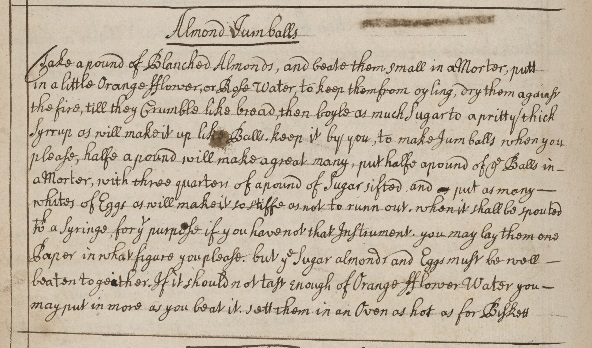 Almond Jumballs
Take a pound of Blanched Almonds, and beate them small in a Morter, putt
in a little Orange fflower, or Rose Water, to keep them from oyling, dry them against
the fire, till they Crumble like bread, then boyle as much Sugar to a pritty thick
Syrrup as will make it up like Balls. keep it by you, to make Jumballs when you
please, halfe a pound will make a great many, put halfe a pound of ye Balls in
a Morter, with three quarters of a pound of Sugar sifted, and put as many
whites of Eggs as will make it so stiffe as not to runn out. when it shall be spouted
to a Syringe for ye purpose if you have not that Instrument. you may lay them one
Paper in what figure you please. but ye Sugar almonds and Eggs must be well
beaten together. If it should not tast Enough of Orange fflower Water you
may put in more as you beat it. sett them in an Oven as hot as for Biskett